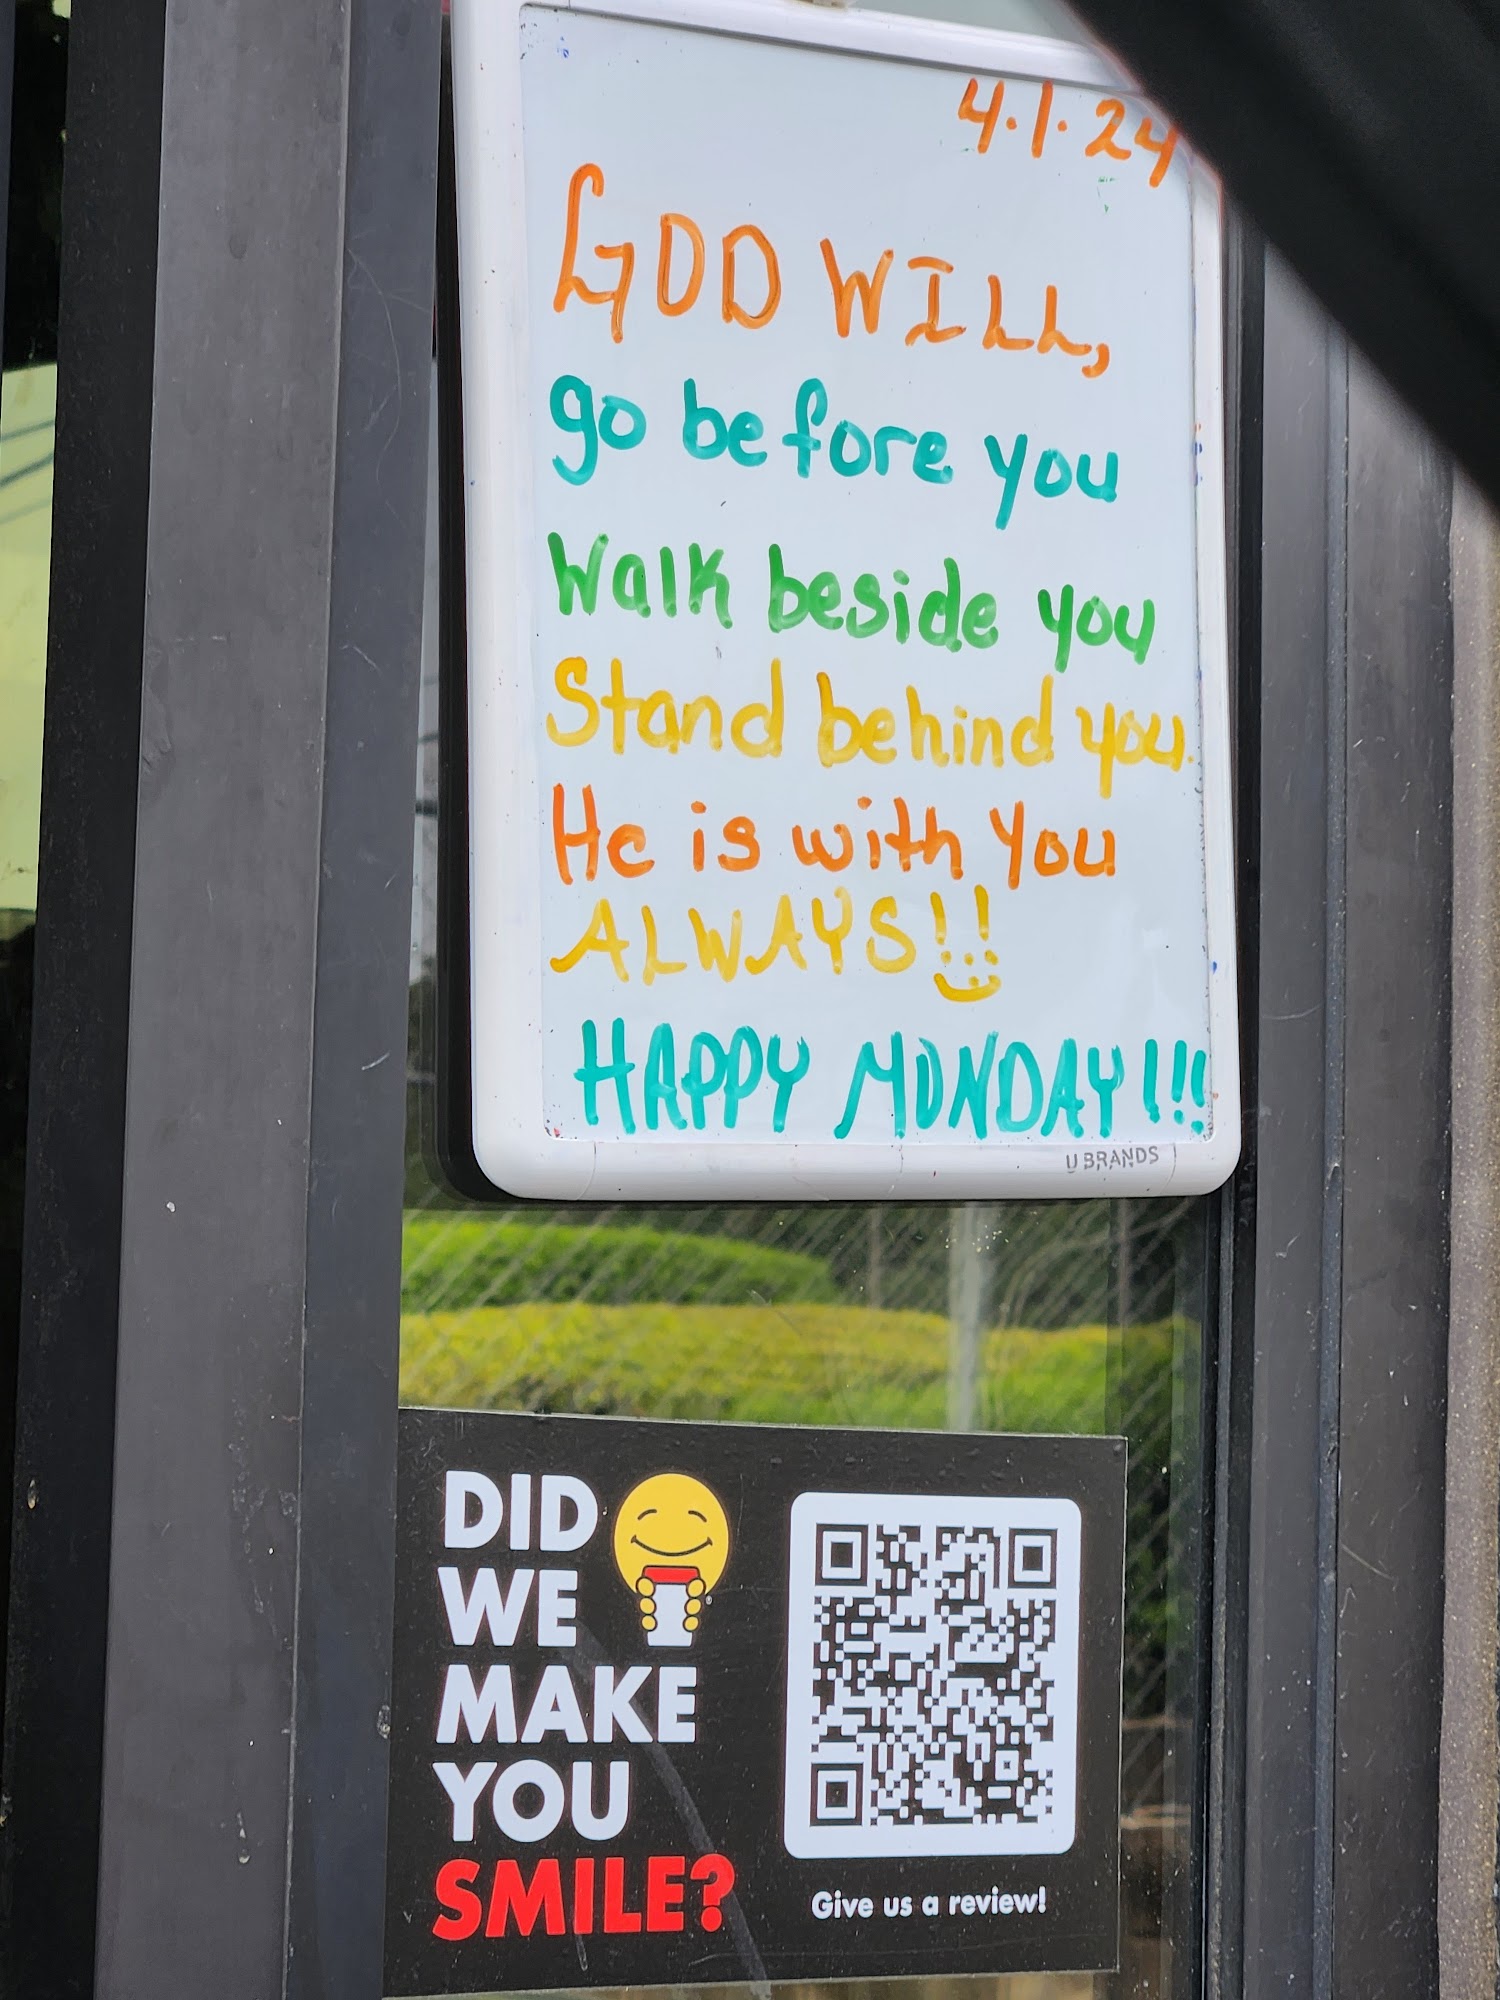 4.1.24
GOD WILL,
go before you
Walk beside you
Stand behind you.
He is with you
ALWAYS!!
HAPPY MONDAY!!!
U BRANDS
DID
WE
MAKE
YOU
SMILE?
Give us a review!